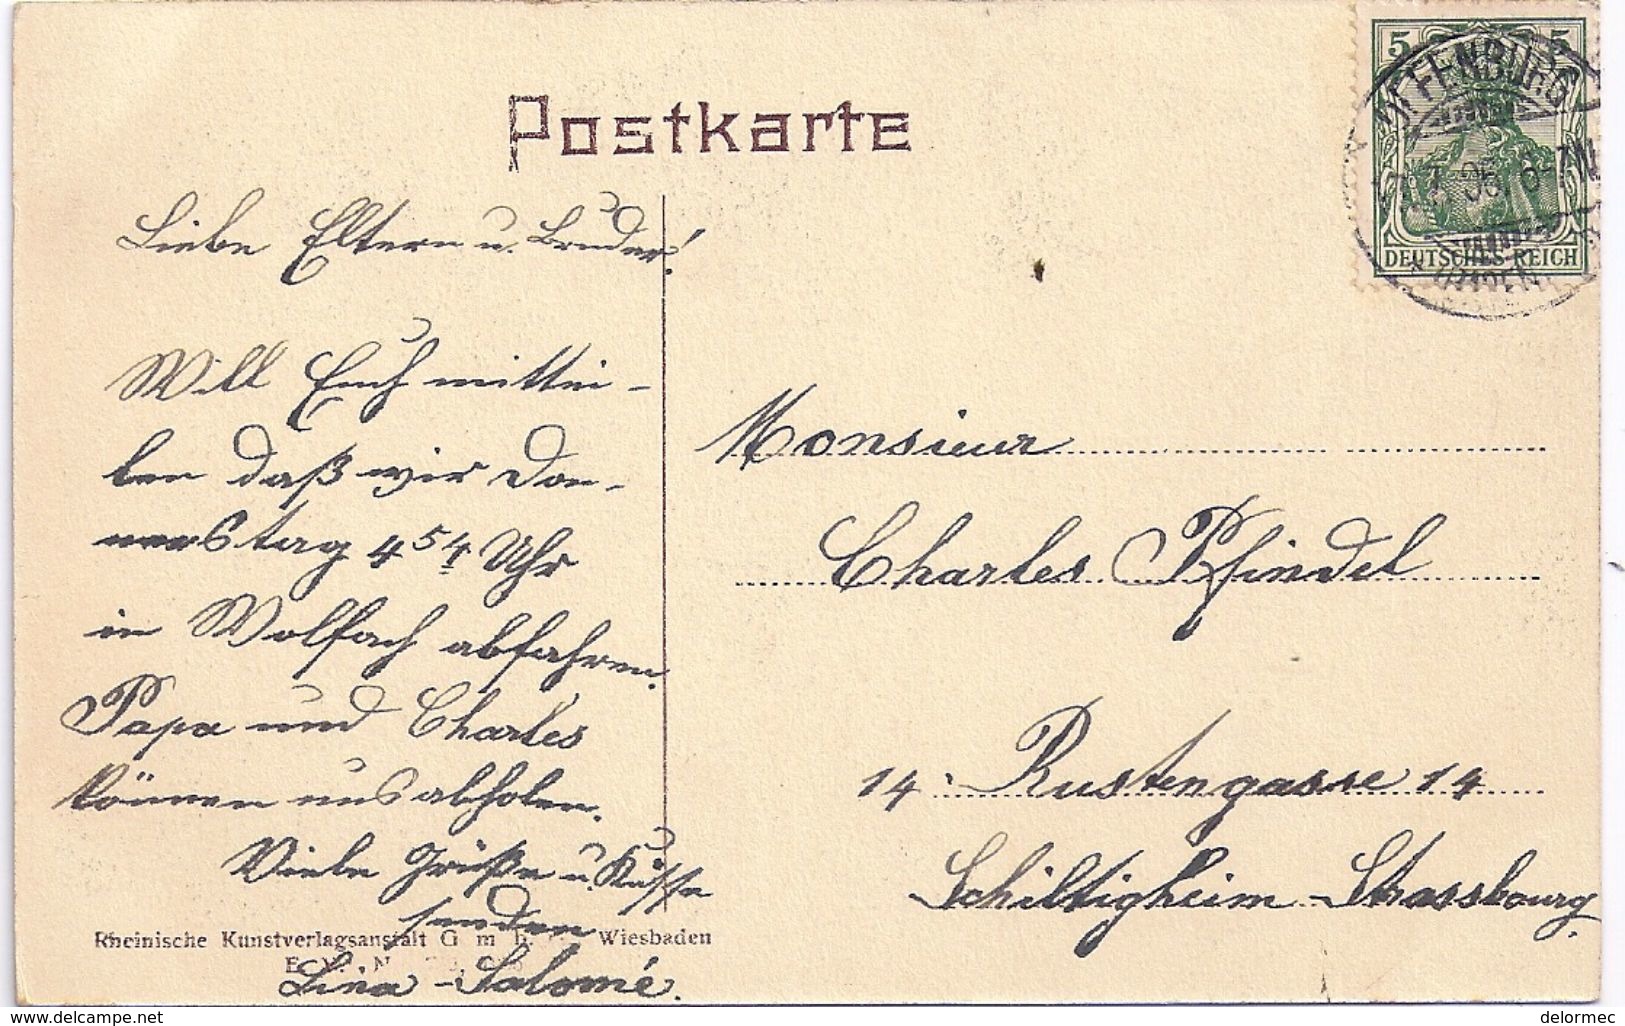 Postkarte
5 5
DEUTSCHES REICH
Liebe Eltern u. Bruder!
Will Euch mittei-
len daß wir Don-
nerstag 4 54 Uhr
in Wolfach abfahren.
Papa und Charles
können uns abholen.
Viele Grüße u. Küsse
senden
Lina - Salomé.
Rheinische Kunstverlagsanstalt G m b. Wiesbaden
Monsieur
Charles Pfindel
14 Rustengasse 14
Schiltigheim - Strassbourg.
www.delcampe.net
delormec